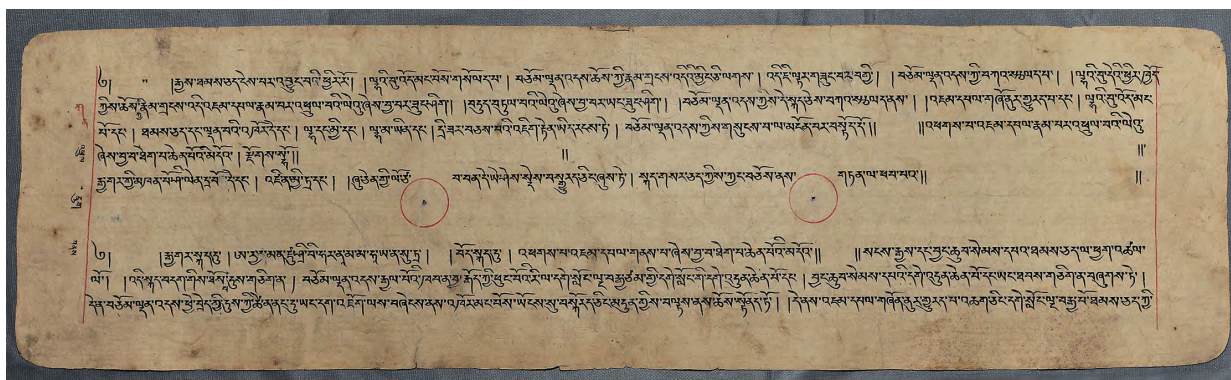 ༄། " །རྒྱས་ཐམས་ཅད་ངེས་པར་འབྱུང་བའི་ཕྱིར་རོ། །ལྷའི་བུ་འོད་མང་པོས་གསོལད་པ། བཅོམ་ལྡན་འདས་ཆོས་ཀྱི་རྣམ་གྲངས་འདིའི་མྱིང་ཅི་ལགས། འདི་ཇི་ལྟར་གཟུང་བར་བགྱི། །བཅོམ་ལྡན་འདས་ཀྱི་བཀའ་སྩལད་པ། །ལྷའི་བུ་དེའི་ཕྱིར་ཁྱོད་
ཀྱིས་ཆོས་ཀྱི་རྣམ་གྲངས་འདི་འཇམ་དཔལ་རྣམ་པར་འཕྲུལ་བའི་ལེའུ་ཞེས་བྱ་བར་ཟུངཤིག། །བདུད་བཏུལ་བའི་ལེའུ་ཞེས་བྱ་བར་ཡང་ཟུངཤིག། །བཅོམ་ལྡན་འདས་ཀྱིས་དེ་སྐད་ཅེས་བཀའ་སྩལད་ནས། །འཇམ་དཔལ་གཞོནུར་གྱུརད་པ་དང། ལྷའི་བུ་འོད་མང་
པོ་དང། ཐམས་ཅད་དང་ལྡན་བའི་འཁོར་དེ་དང། ལྷ་དང་མྱི་དང། ལྷ་མ་ཡིན་དང། དྲི་ཟར་བཅས་པའི་འཇིག་རྟེན་ཡི་རངས་ཏེ། བཅོམ་ལྡན་འདས་ཀྱིས་གསུངས་པ་ལ་མངོན་བར་སྟོད་དོ།། །།འཕགས་པ་འཇམ་དཔལ་རྣམ་པར་འཕྲུལ་བའི་ལེའུ་
ཞེས་བྱ་བ་ཐེག་པ་ཆེན་པོའི་མདོའ། །རྫོགས་སྷོ།། །། །།
རྒྱ་གར་གྱི་མཁན་པོ་ དང། །ཞུ་ཆེན་གྱི་ལོ་ཙ པ་བན་དེ་ཡེ་ཤེས་སྡེས་བསྒྱུརད་ཅིང་ཞུས་ཏེ། སྐད་གསར་ཅད་ཀྱིས་ཀྱང་བཅོས་ནས་ གཏན་ལ་ཕབ་པའ།། །།
༄། །རྒྱ་གར་སྐད་དུ། །ཨ་རྱ་མན་ཛུ་ཤྲི་བི་ཧ་ར་ན་མ་མ་ཧ་ཡན་སུ་ཏྲ། །བོད་སྐད་དུ། །འཕགས་པ་འཇམ་དཔལ་གནས་པ་ཞེས་བྱ་བ་ཐེག་པ་ཆེན་པོའི་མདོའ།། །།སངས་རྒྱས་དང་བྱང་ཆུབ་སེམས་དཔའ་ཐམས་ཅད་ལ་ཕྱག་འཚལ་
ལོ། །འདི་སྐད་བདག་གིས་ཐོས་དུས་གཅིག་ན། བཅོམ་ལྡན་འདས་རྒྱལ་པོའི་ཁབ་ན་བྱ་རྒོད་ཀྱི་ཕུང་པོའི་རི་ལ་དགེ་སློང་ལྔ་བརྒྱ་ཙམ་གྱི་དགེ་སློང་གི་དགེ་འདུན་ཆེན་པོ་དང། བྱང་ཆུབ་སེམས་དཔའི་དགེ་འདུན་ཆེན་པོ་དང་ཡང་ཐབས་གཅིག་ན་བཞུགས་ཏེ།
དེ་ན་བཅོམ་ལྡན་འདས་ཕྱི་དྲོ་ཀྱི་དུས་ཀྱི་ཚེ་ནང་དུ་ཡང་དག་འཇོག་ལས་བཞེངས་ནས་འཁོར་མང་པོས་ཡོངས་སུ་བསྐོརད་ཅིང་མདུན་ཀྱིས་བལྟས་ནས་ཆོས་སྟོནད་ཏོ། །དེ་ནས་འཇམ་དཔལ་གཞོནུར་གྱུརད་པ་འཆག་ཅིང་དགེ་སློང་ལྔ་བརྒྱ་པོ་ཐམས་ཅད་ཀྱི་